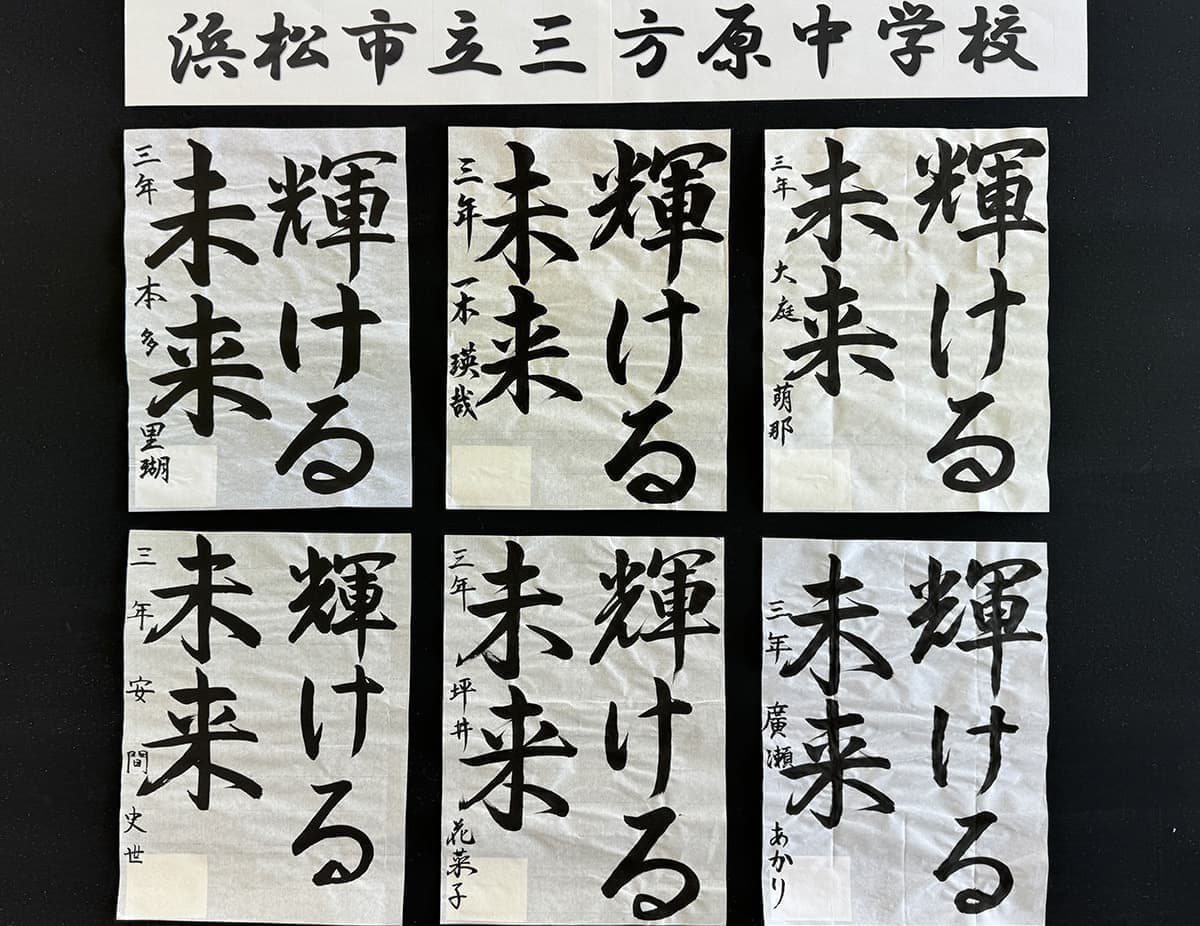 浜松市立三方原中学校
輝ける
未来
三年 大庭 萌那
輝ける
未来
三年 一木 瑛哉
輝ける
未来
三年 本多 里瑚
輝ける
未来
三年 廣瀬 あかり
輝ける
未来
三年 坪井 花菜子
輝ける
未来
三年 安間 史世